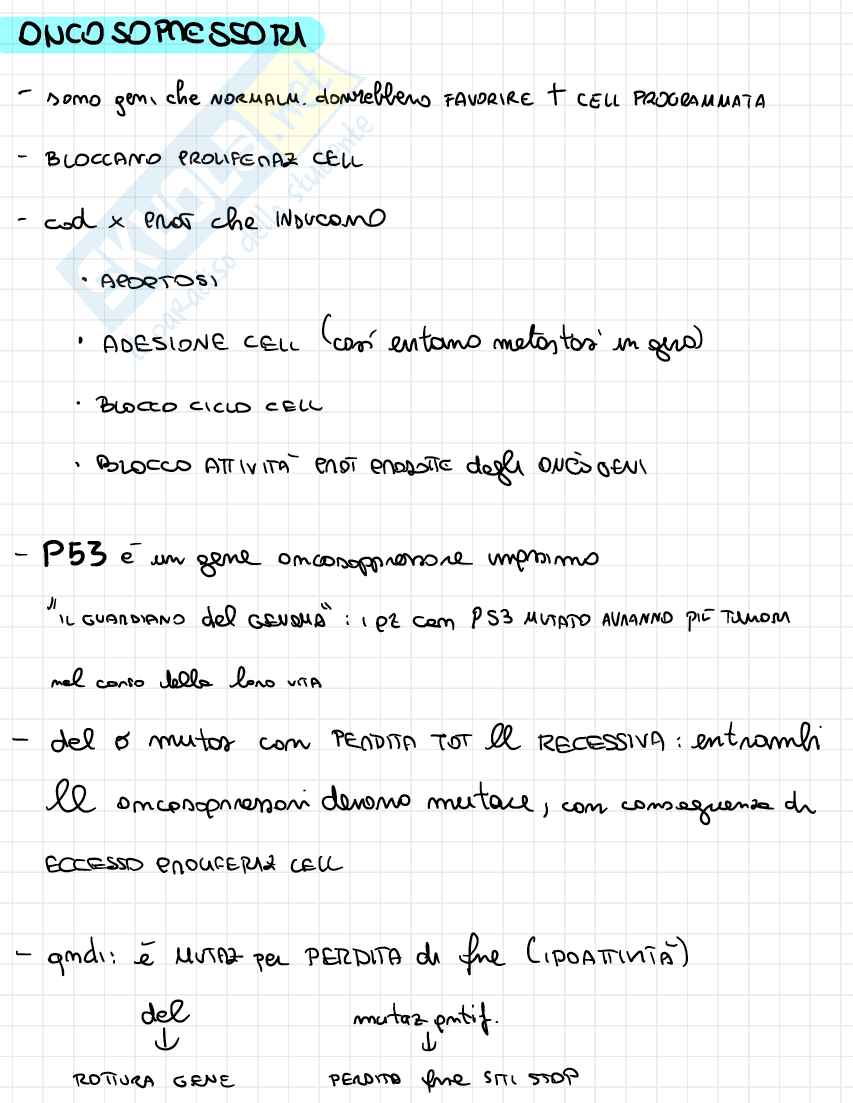 ONCOSOPPRESSORI
- sono geni che NORMALM. dovrebbero FAVORIRE † CELL PROGRAMMATA
- BLOCCANO PROLIFERAZ CELL
- cod x PROT che INDUCONO
· APOPTOSI
· ADESIONE CELL (così evitano metastasi in giro)
· BLOCCO CICLO CELL
· BLOCCO ATTIVITÀ PROT PRODOTTE degli ONCOGENI
- P53 è un gene oncosoppressore imp.ssimo
"IL GUARDIANO del GENOMA": i PZ con P53 MUTATO AVRANNO PIÙ TUMORI
nel corso della loro VITA
- del o mutaz con PERDITA TOT ll RECESSIVA: entrambi
ll oncosoppressori devono mutare, con conseguenza di
ECCESSO PROLIFERAZ CELL
- qndi: è MUTAZ per PERDITA di fne (IPOATTIVITÀ)
del mutaz pntif.
↓ ↓
ROTTURA GENE PERDITA fne SITI STOP
SKUOLA.net
il paradiso dello studente